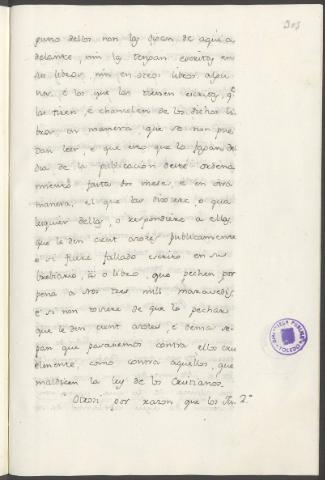 303
guno dellos non las digan de aqui a
delante, nin las tengan escritas en
sus libros, nin en otros libros algu
nos, é los que las tienen escritas, qe
las tiren, é chancelen de los dichos li
bros, en manera, que se non pue
dan leer, é que esto que lo fagan del
dia de la publicacion deste ordena
miento fasta dos meses, é en otra
manera, el que las dixiere, o qua
lequier dellas, o respondiere a ellas,
que le den cient azotes publicamente
é si fuere fallado escrito en su
breviario, o libro, que pechen por
pena a Nos tres mill maravedis,
é si non toviere de que lo pechar
que le den cient azotes, é demas se
pan que pasaremos contra ellos cru
elmente, como contra aquellos, que
maldicen la ley de los Christianos.
Otrosi por razon que los 2.ª
BIBLIOTECA PUBLICA
TOLEDO